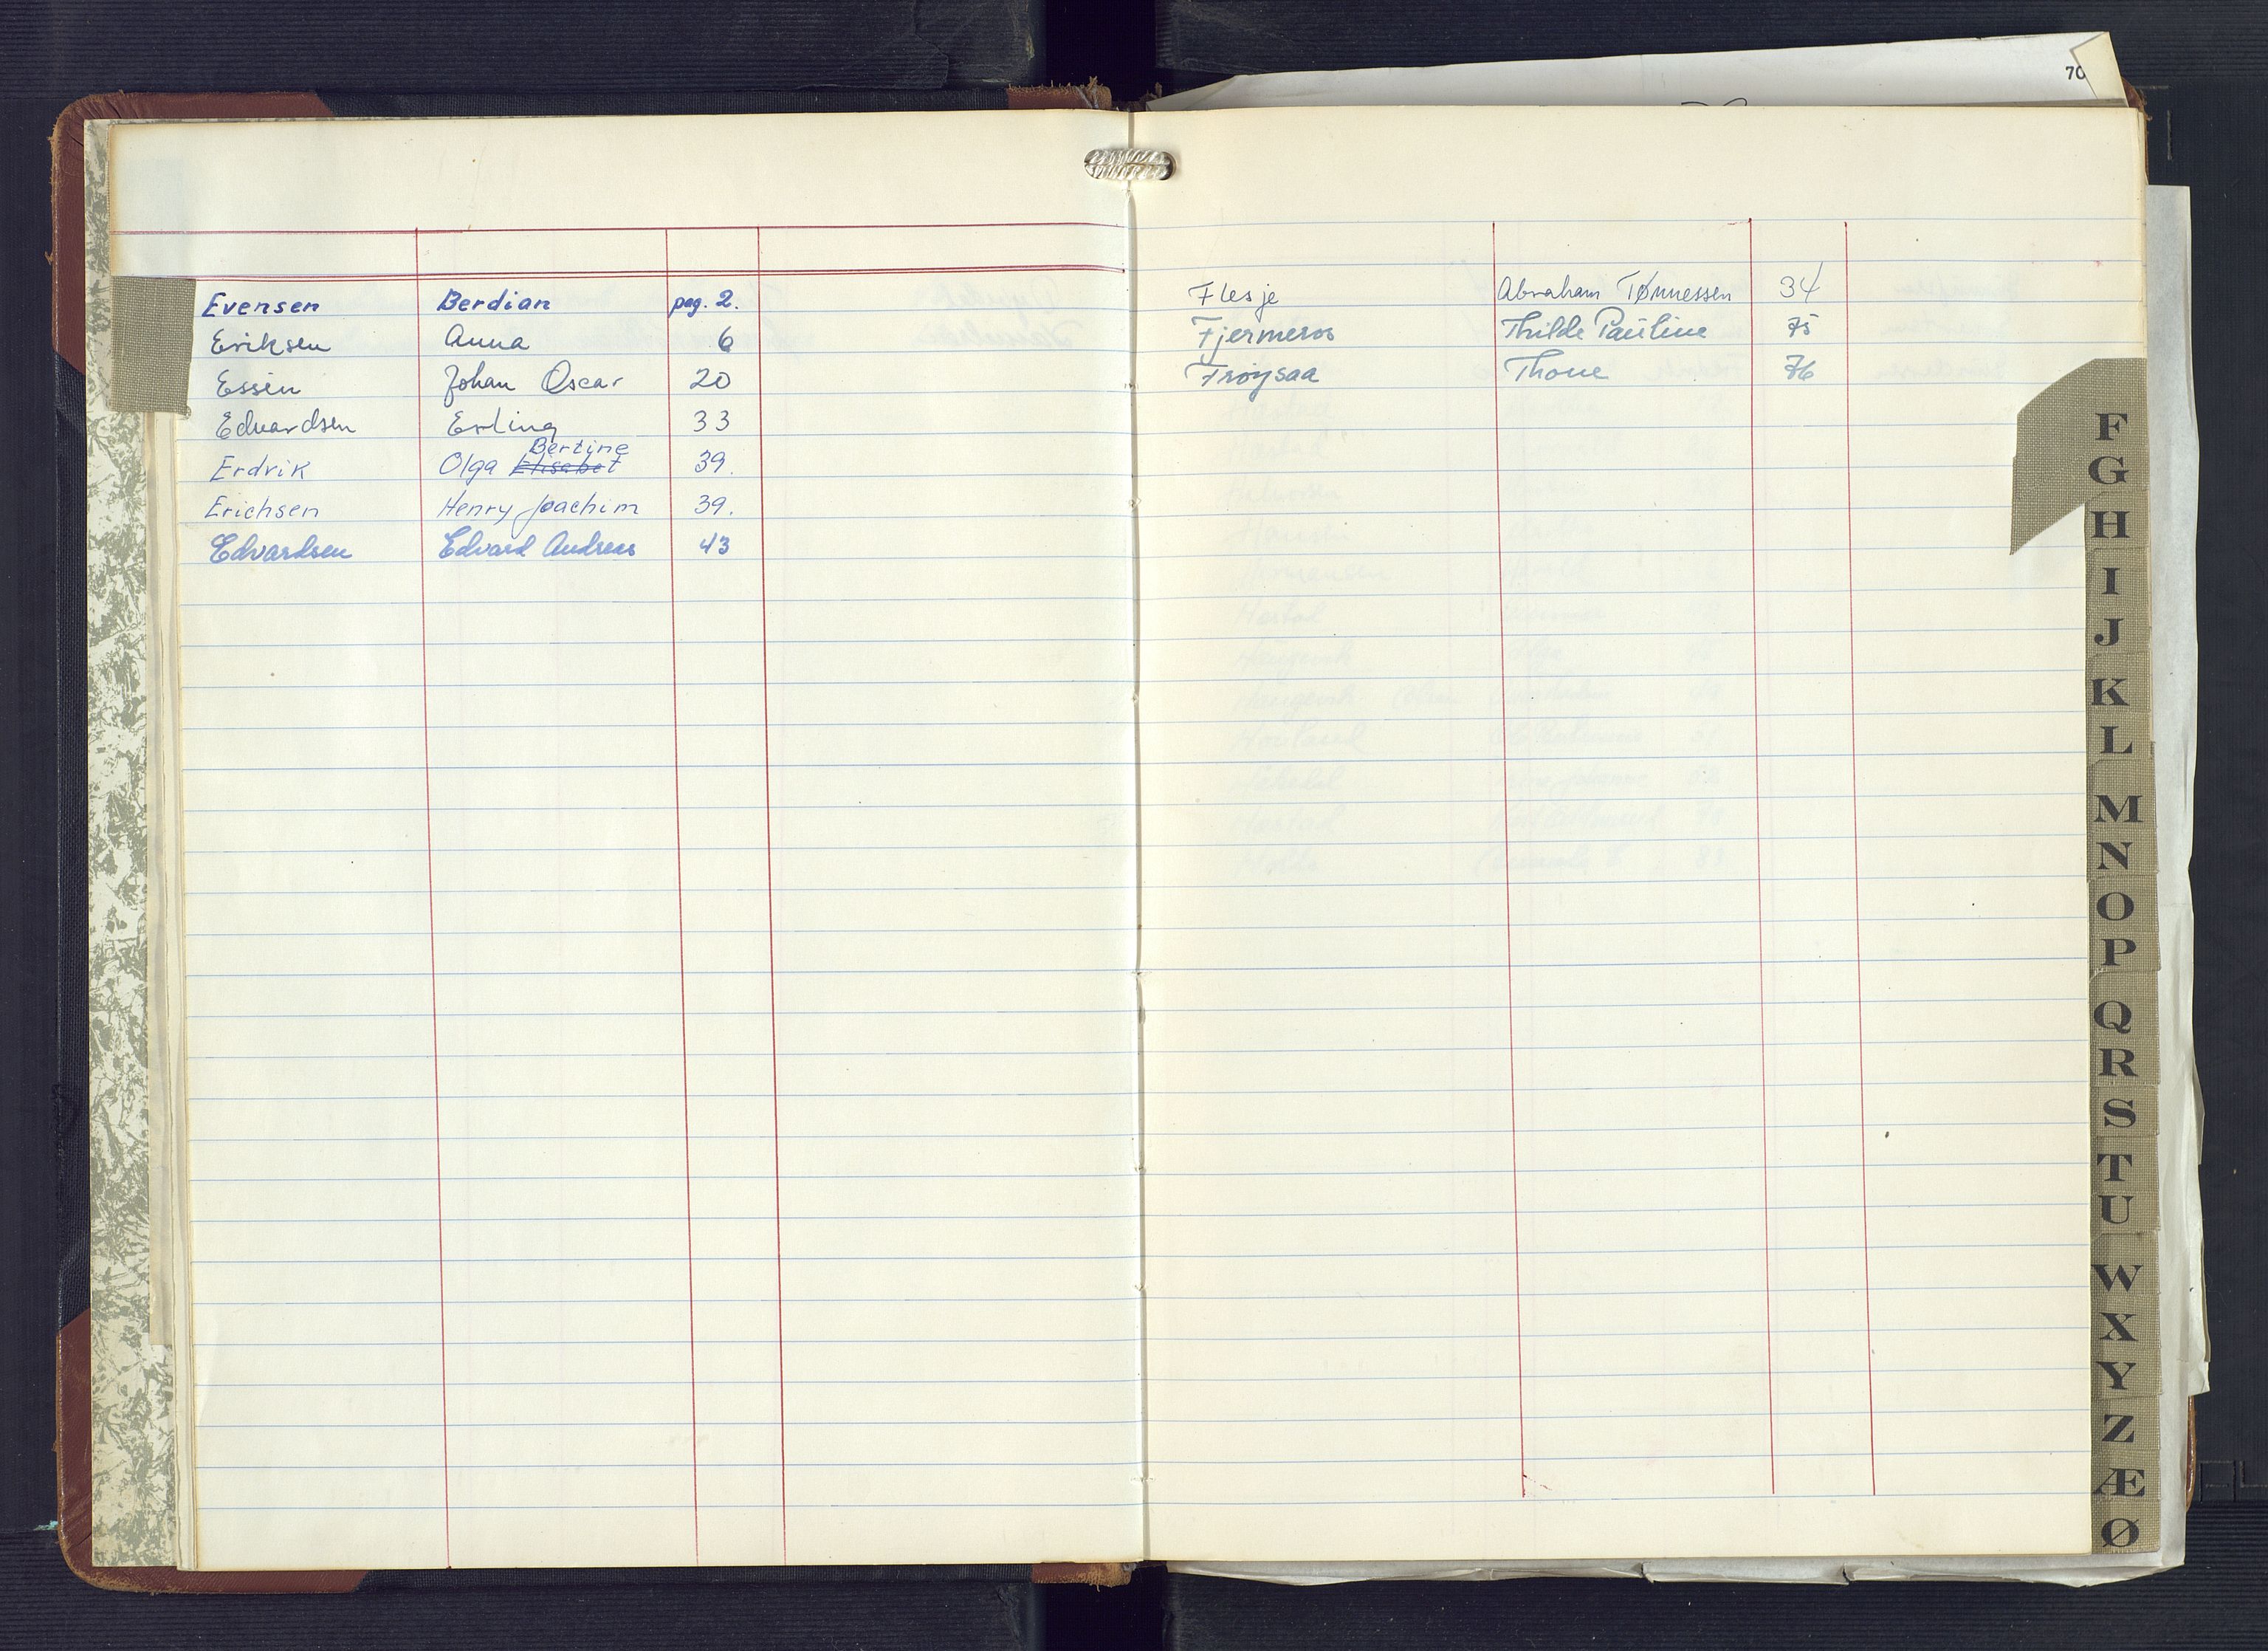 70
Evensen Berdian pag. 2.
Eriksen Anna 6
Essen Johan Oscar 20
Edvardsen Erling 33
Bertine
Erdvik Olga Elisabet 39.
Erichsen Henry Joachim 39.
Edvardsen Edvard Andreas 43
Flesje Abraham Tønnessen 34
Fjermeros Thilde Pauline 75
Frøysaa Thone 76
F
G
H
I
J
K
L
M
N
O
P
Q
R
S
T
U
W
X
Y
Z
Æ
Ø